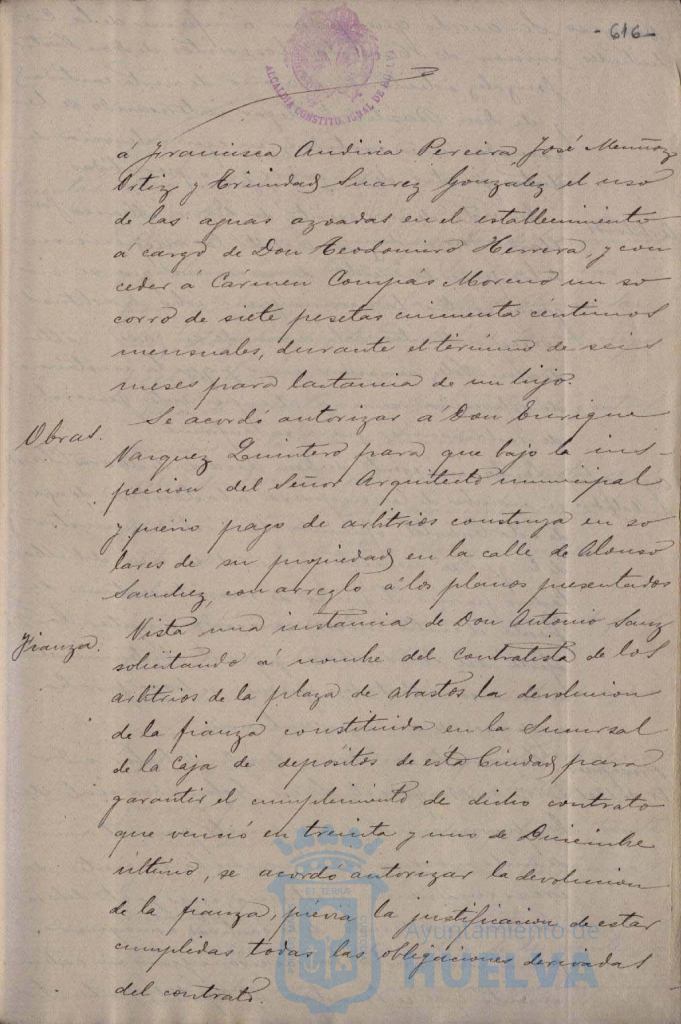 - 616 -
ALCALDIA CONSTITUCIONAL DE HUELVA
á Francisca Andivia Pereira José Muñoz
Ortiz y Trinidad Suarez González el uso
de las aguas azoadas en el establecimiento
á cargo de Don Teodomiro Herrera, y con
ceder á Cármen Compás Moreno un so
corro de siete pesetas cincuenta céntimos
mensuales, durante el término de seis
meses para lactancia de un hijo.
Obras.
Se acordó autorizar á Don Enrique
Vazquez Quintero para que bajo la ins-
peccion del Señor Arquitecto municipal
y prévio pago de arbitrios construya en so
lares de su propiedad en la calle de Alonso
Sanchez, con arreglo á los planos presentados
Fianza.
Vista una instancia de Don Antonio Sanz
solicitando á nombre del contratista de los
arbitrios de la plaza de abastos la devolucion
de la fianza constituida en la Sucursal
de la Caja de depósitos de esta Ciudad para
garantir el cumplimiento de dicho contrato
que venció en treinta y uno de Diciembre
último, se acordó autorizar la devolucion
de la fianza, prévia la justificacion de estar
cumplidas todas las obligaciones derivadas
del contrato.
Ayuntamiento de
HUELVA